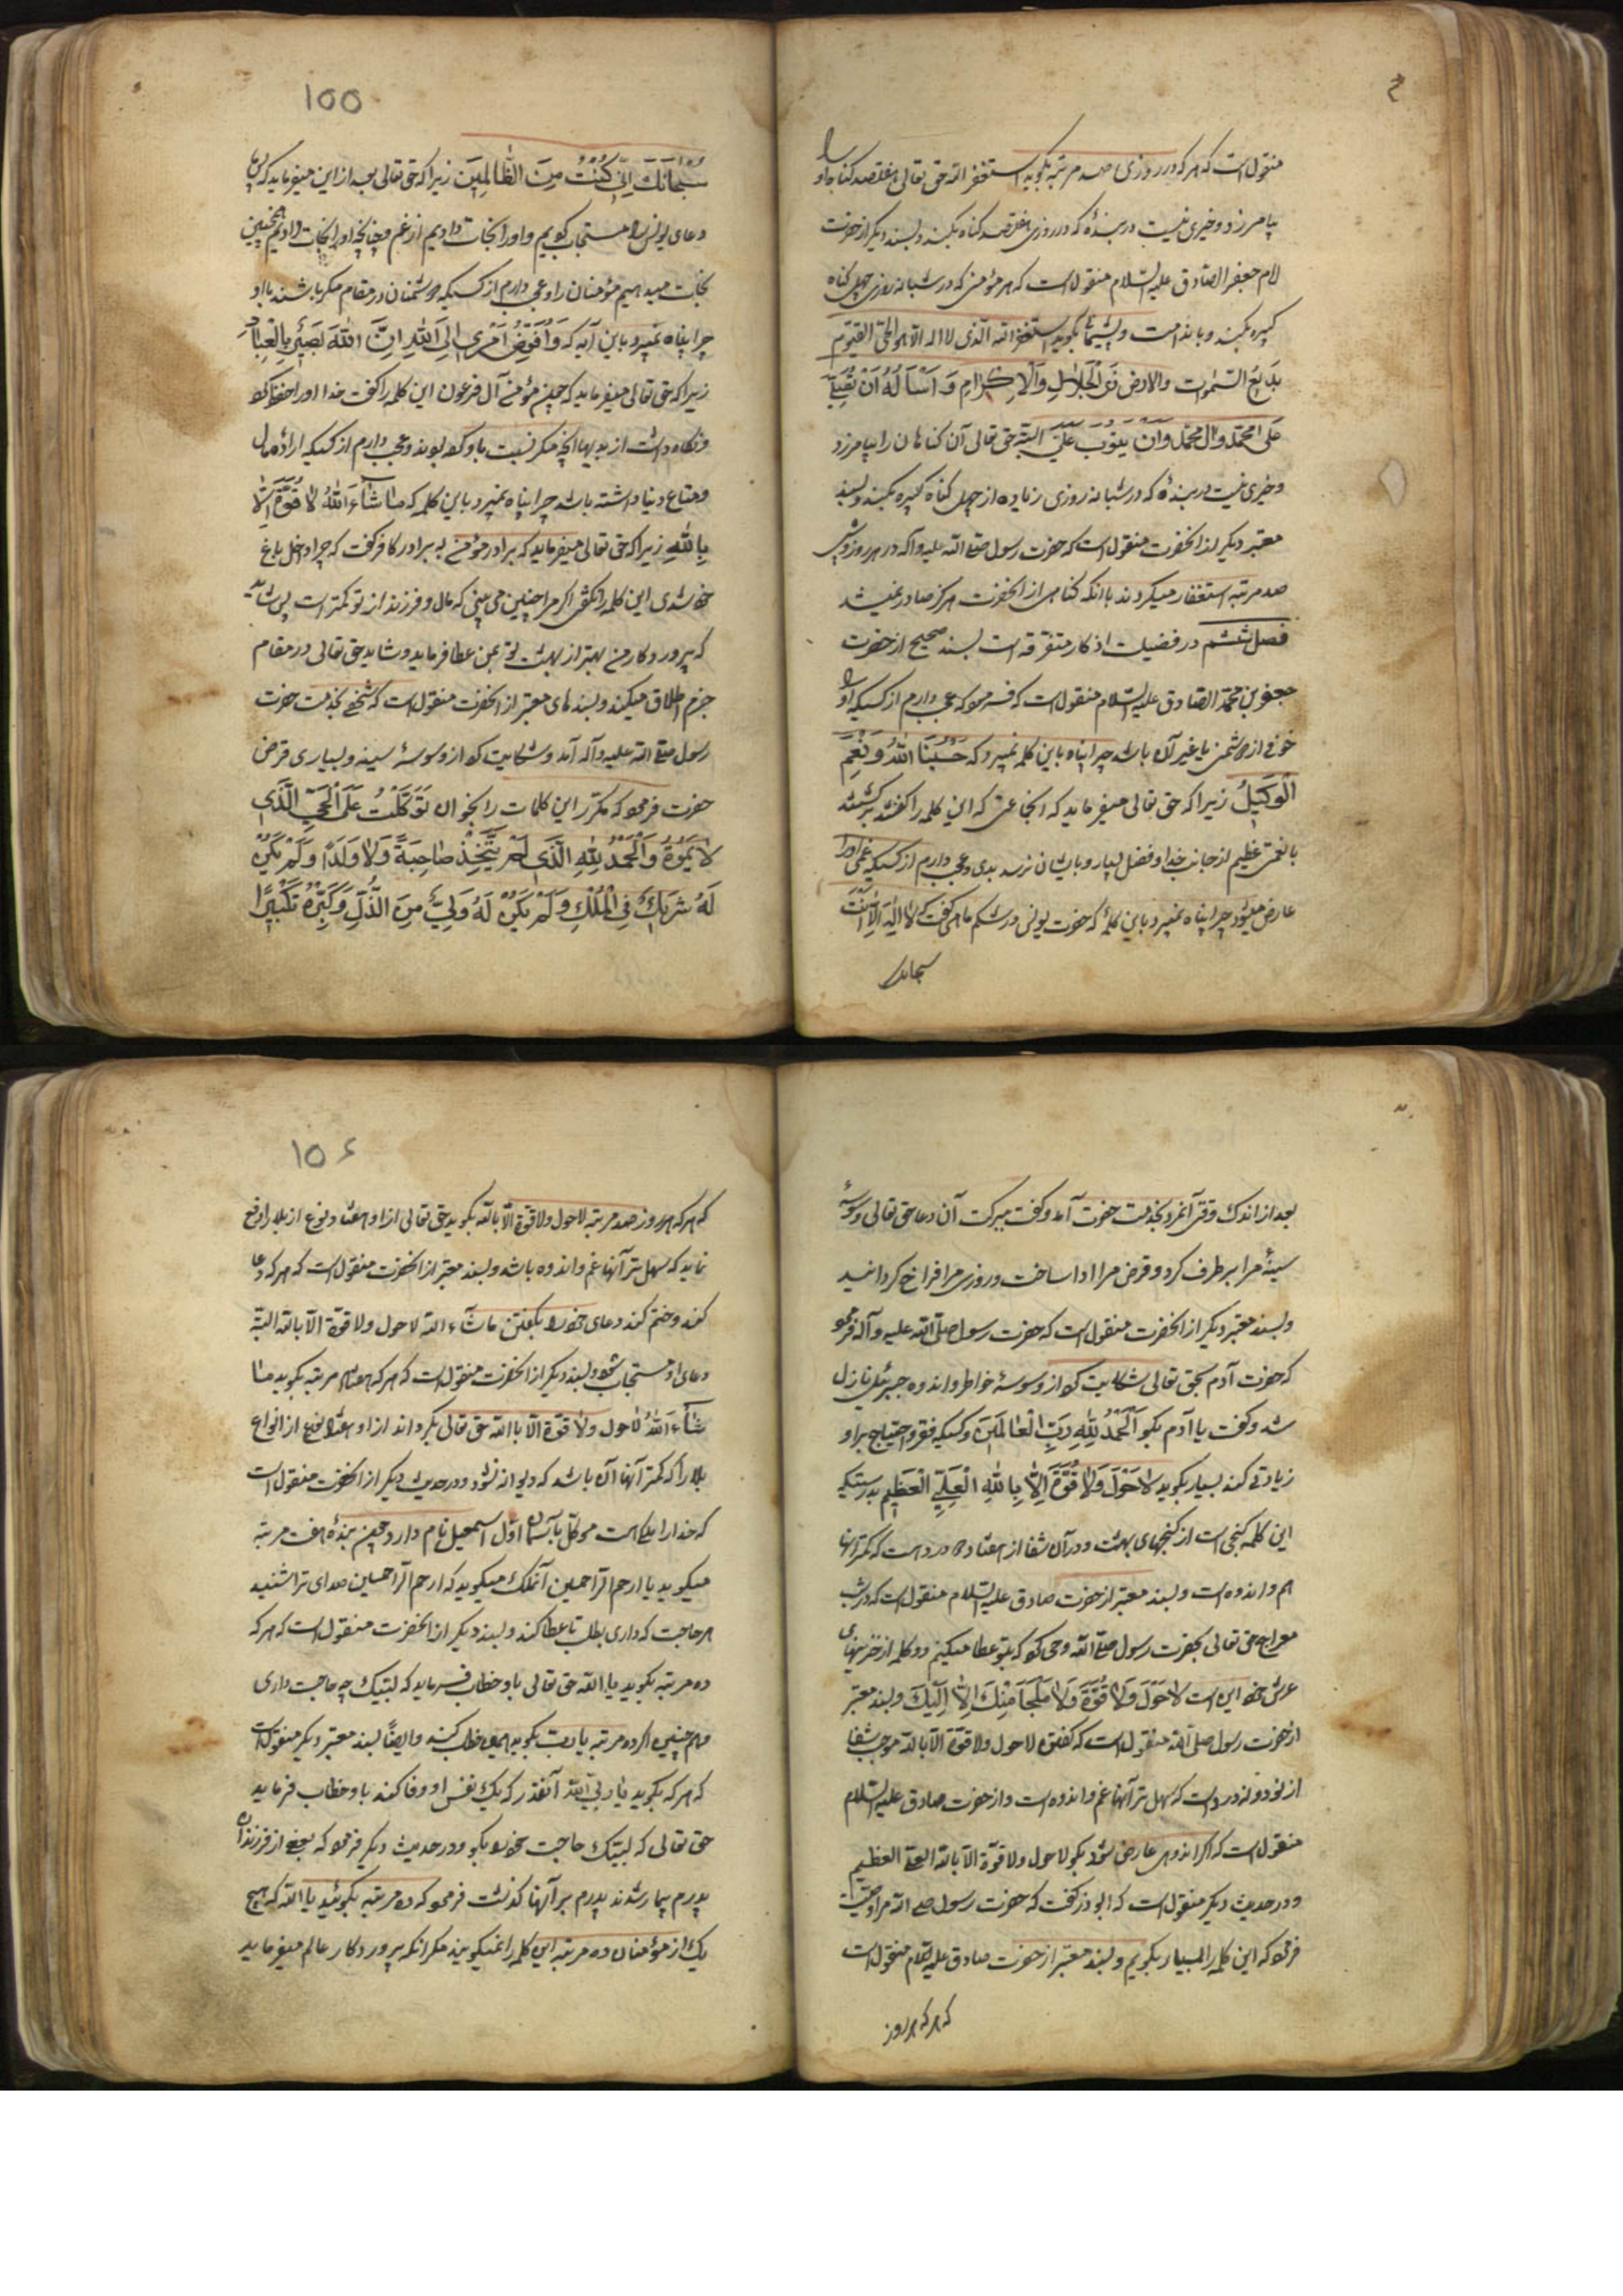 منقول است که هر که در روزی صد مرتبه بگوید استغفر الله حق تعالی هفتصد کناه او را
بیامرزد و خیری نیست در بندهٔ که در روزی هفتصد کناه بکند و بسند دیکر از حضرت
امام جعفر الصادق علیه السلام منقول است که هر مؤمنی که در شبانه روزی چهل کناه
کبیره بکند و با ندامت و پشیمانی بکوید استغفر الله الذی لا اله الا هو الحی القیوم
بَدیعَ السّمٰوات والارض ذَی الْجَلاٰلِ وَالْاِکْرٰامِ وَ اَسْأَلُهُ اَنْ یُصَلِّیَ
عَلیٰ محمّد وآل محمّد وَاَنْ یَتوُبَ عَلَیَّ البته حق تعالی آن کناهان را بیامرزد
و خیری نیست در بندهٔ که در شبانه روزی زیاده از چهل کناه کبیره بکند و بسند
معتبر دیکر از آنحضرت منقول است که حضرت رسول صلی الله علیه وآله در هر روز و شب
صد مرتبه استغفار میکردند با آنکه کناهی از آنحضرت هرکز صادر نمیشد
فصل ششم در فضیلت اذکار متفرقه است بسند صحیح از حضرت
جعفر بن محمّد الصّادق علیه السّلام منقول است که فرمود که عجب دارم از کسیکه او را
خوفی از دشمن یا غیر آن باشد چرا پناه باین کلمه نمیبرد که حَسْبُنَا اللّٰهُ وَنِعْمَ
الْوَکیٖلُ زیرا که حق تعالی میفرماید که آنجماعتی که این کلمه را کفتند برکشتند
با نعمتی عظیم از جانب خدا و فضل بسیار و بایشان نرسد بدی و عجب دارم از کسیکه غمی او را
عارض میشود چرا پناه نمیبرد باین کلمهٔ که حضرت یونس در شکم ماهی کفت که لاٰ اِلٰهَ اِلاّٰ اَنْتَ
سبحانک
100
سُبْحٰانَکَ اِنّیٖ کُنْتُ مِنَ الظّٰالِمیٖنَ زیرا که حق تعالی بعد از این میفرماید که پس ما
دعای یونس را مستجاب کردیم و او را نجات دادیم از غم و چنانچه او را نجات دادیم همچنین
نجات میدهیم مؤمنان را و عجب دارم از کسیکه دشمنان در مقام مکر باشند با او
چرا پناه نمیبرد باین آیه که وَاُفَوِّضُ اَمْریٖ اِلَی اللّٰهِ اِنَّ اللّٰهَ بَصیٖرٌ بِالْعِبٰادِ
زیرا که حق تعالی میفرماید که چون مؤمن آل فرعون این کلمه را کفت خدا او را حفظ کرد
و نکاه داشت از بدیها آنچه مکر نسبت باو کرده بودند و عجب دارم از کسیکه ارادهٔ مال
و متاع دنیا داشته باشد چرا پناه نمیبرد باین کلمه که مٰا شٰاءَ اللّٰهُ لاٰ قُوَّةَ اِلاّٰ
بِاللّٰهِ زیرا که حق تعالی میفرماید که برادر مؤمن به برادر کافر کفت که چرا داخل باغ
خود شدی این کلمه را نکفتی اکر مرا چنین می بینی که مال و فرزند از تو کمتر است پس شاید
که پرورد کار من بهتر از بهشت تو بمن عطا فرماید و شاید حق تعالی در مقام
جزم اطلاق میکند و بسندهای معتبر از آنحضرت منقول است که شخصی بخدمت حضرت
رسول صلی الله علیه وآله آمد و شکایت کرد از وسوسهٔ سینه و بسیاری قرض
حضرت فرمود که مکرّر این کلمات را بخوان تَوَکَّلْتُ عَلَی الْحَیِّ الَّذیٖ
لاٰ یَمُوتُ وَالْحَمْدُ لِلّٰهِ الَّذیٖ لَمْ یَتَّخِذْ صٰاحِبَةً وَلاٰ وَلَدًا وَلَمْ یَکُنْ
لَهُ شَریٖکٌ فیِ الْمُلْکِ وَلَمْ یَکُنْ لَهُ وَلِیٌّ مِنَ الذُّلِّ وَکَبِّرْهُ تَکْبیٖرًا
بعد از اندک وقتی آنمرد بخدمت حضرت آمد و کفت ببرکت آن دعا حق تعالی وسوسهٔ
سینهٔ مرا برطرف کرد و قرض مرا ادا ساخت و روزی مرا فراخ کردانید
و بسند معتبر دیکر از آنحضرت منقول است که حضرت رسول صلّی الله علیه وآله فرمود
که حضرت آدم بحق تعالی شکایت کرد از وسوسهٔ خواطر و اندوه جبرئیل نازل
شد و کفت یا آدم بکو اَلْحَمْدُ لِلّٰهِ رَبِّ الْعٰالَمیٖنَ و کسیکه فقر و احتیاج بر او
زیادتی کند بسیار بکوید لاٰ حَوْلَ وَلاٰ قُوَّةَ اِلاّٰ بِاللّٰهِ الْعَلِیِّ الْعَظیٖمِ بدرستیکه
این کلمه کنجی است از کنجهای بهشت و در آن شفا از هفتاد و دو درد است که کمتر آنها
هم و اندوه است و بسند معتبر از حضرت صادق علیه السّلام منقول است که در شب
معراج حق تعالی بحضرت رسول صلی الله وحی کرد که بتو عطا میکنم دو کلمه از خزینهای
عرش خود این است لاٰ حَوْلَ وَلاٰ قُوَّةَ وَلاٰ مَلْجَأَ مِنْکَ اِلاّٰ اِلَیْکَ و بسند معتبر
از حضرت رسول صلی الله منقول است که کفتن لا حول ولا قوّة الاّ بالله موجب شفا
از نود و نه درد است که سهل تر آنها غم و اندوه است و از حضرت صادق علیه السّلام
منقول است که اکر اندوهی عارض شود بکو لا حول ولا قوّة الاّ بالله العلی العظیم
و در حدیث دیکر منقول است که ابوذر کفت که حضرت رسول صلی الله مرا وصیّت
فرمود که این کلمه را بسیار بکویم و بسند معتبر از حضرت صادق علیه السّلام منقول است
که هر که هر روز
10۶
که هر که هر روز صد مرتبه لا حول ولا قوّة الاّ بالله بکوید حق تعالی از او هفتاد نوع از بلا را دفع
نماید که سهل تر آنها غم و اندوه باشد و بسند معتبر از آنحضرت منقول است که هر که دعا
کند و ختم کند دعای خود را بکفتن ما شاء الله لا حول ولا قوّة الاّ بالله البتّه
دعای او مستجاب شود و بسند دیکر از آنحضرت منقول است که هر که هفتاد مرتبه بکوید مٰا
شٰاءَ اللّٰهُ لاٰ حول ولاٰ قوّة الاّ بالله حق تعالی بکرداند از او هفتاد نوع از انواع
بلا را که کمتر آنها آن باشد که دیوانه نشود و در حدیث دیکر از آنحضرت منقول است
که خدا را ملکی است موکّل بآسمان اوّل اسمعیل نام دارد چون بندهٔ هفت مرتبه
میکوید یا ارحم الرّاحمین آنملک میکوید که ارحم الرّاحمین صدای ترا شنید
هر حاجت که داری بطلب تا عطا کند و بسند دیکر از آنحضرت منقول است که هر که
ده مرتبه بکوید یا الله حق تعالی باو خطاب فرماید که لبّیک چه حاجت داری
و همچنین اکر ده مرتبه یا رب بکوید همین خطاب کند و ایضًا بسند معتبر دیکر منقول است
که هر که بکوید یا ربی الله آنقدر که یک نفس او وفا کند باو خطاب فرماید
حق تعالی که لبّیک حاجت خود را بکو و در حدیث دیکر فرمود که بعضی از فرزندان
پدرم بیمار شدند پدرم بر آنها کذشت فرمود که ده مرتبه بکوئید یا الله که هیچ
یک از مؤمنان ده مرتبه این کلمه را نمیکویند مکر آنکه پرورد کار عالم میفرماید